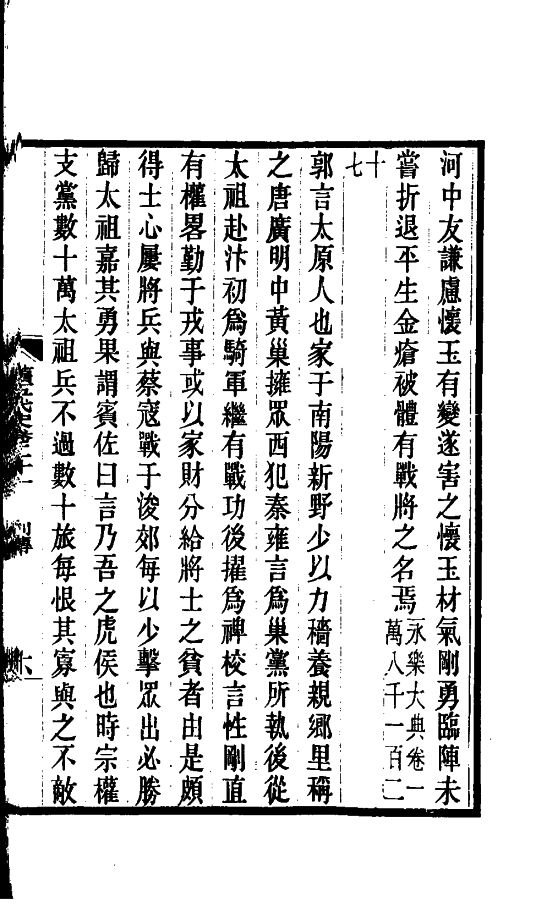 河中友謙慮懷玉有變遂害之懷玉材氣剛勇臨陣未
嘗折退平生金瘡被體有戰將之名焉永樂大典卷一萬八千一百二
十七
郭言太原人也家于南陽新野少以力穡養親鄉里稱
之唐廣明中黃巢擁眾西犯秦雍言為巢黨所執後從
太祖赴汴初為騎軍繼有戰功後擢為裨校言性剛直
有權畧勤于戎事或以家財分給將士之貧者由是頗
得士心屢將兵與蔡寇戰于浚郊每以少擊眾出必勝
歸太祖嘉其勇果謂賓佐曰言乃吾之虎侯也時宗權
支黨數十萬太祖兵不過數十旅每恨其寡與之不敵
舊五代史卷二十一 列傳 六